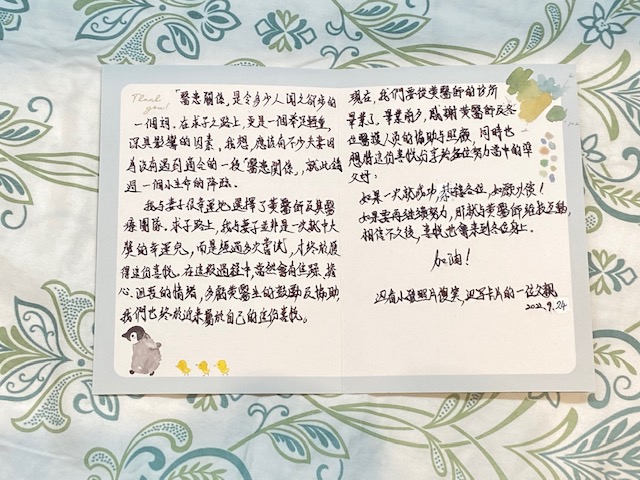 Thank you!
「醫患關係」是令多少人聞之卻步的
一個詞。在求子之路上,更是一個舉足輕重,
深具影響的因素。我想,應該有不少夫妻因
為沒有遇到適合的一段「醫患關係」,就此錯
過一個小生命的降臨。
我與妻子很幸運地選擇了黃醫師及其醫
療團隊。求子路上,我與妻子並非是一次就中大
獎的幸運兒,而是經過多次嘗試,才終於獲
得這份喜悅。在這段過程中,當然會有焦躁、擔
心、沮喪的情緒,多虧黃醫生的鼓勵及協助,
我們也終於迎來屬於自己的這份喜悅。
現在,我們要從黃醫師的診所
畢業了,畢業前夕,感謝黃醫師及各
位醫護人員的協助與照顧,同時也
想將這份喜悅分享於各位努力當中的準
父母:
如果一次就成功,恭禧各位,如願以償!
如果要再繼續努力,那就與黃醫師給彼互動,
相信不久後,喜悅也會來到各位身上。
加油!
沿看小孩照片傻笑,迎寫卡片的一位父親
2022.9.24